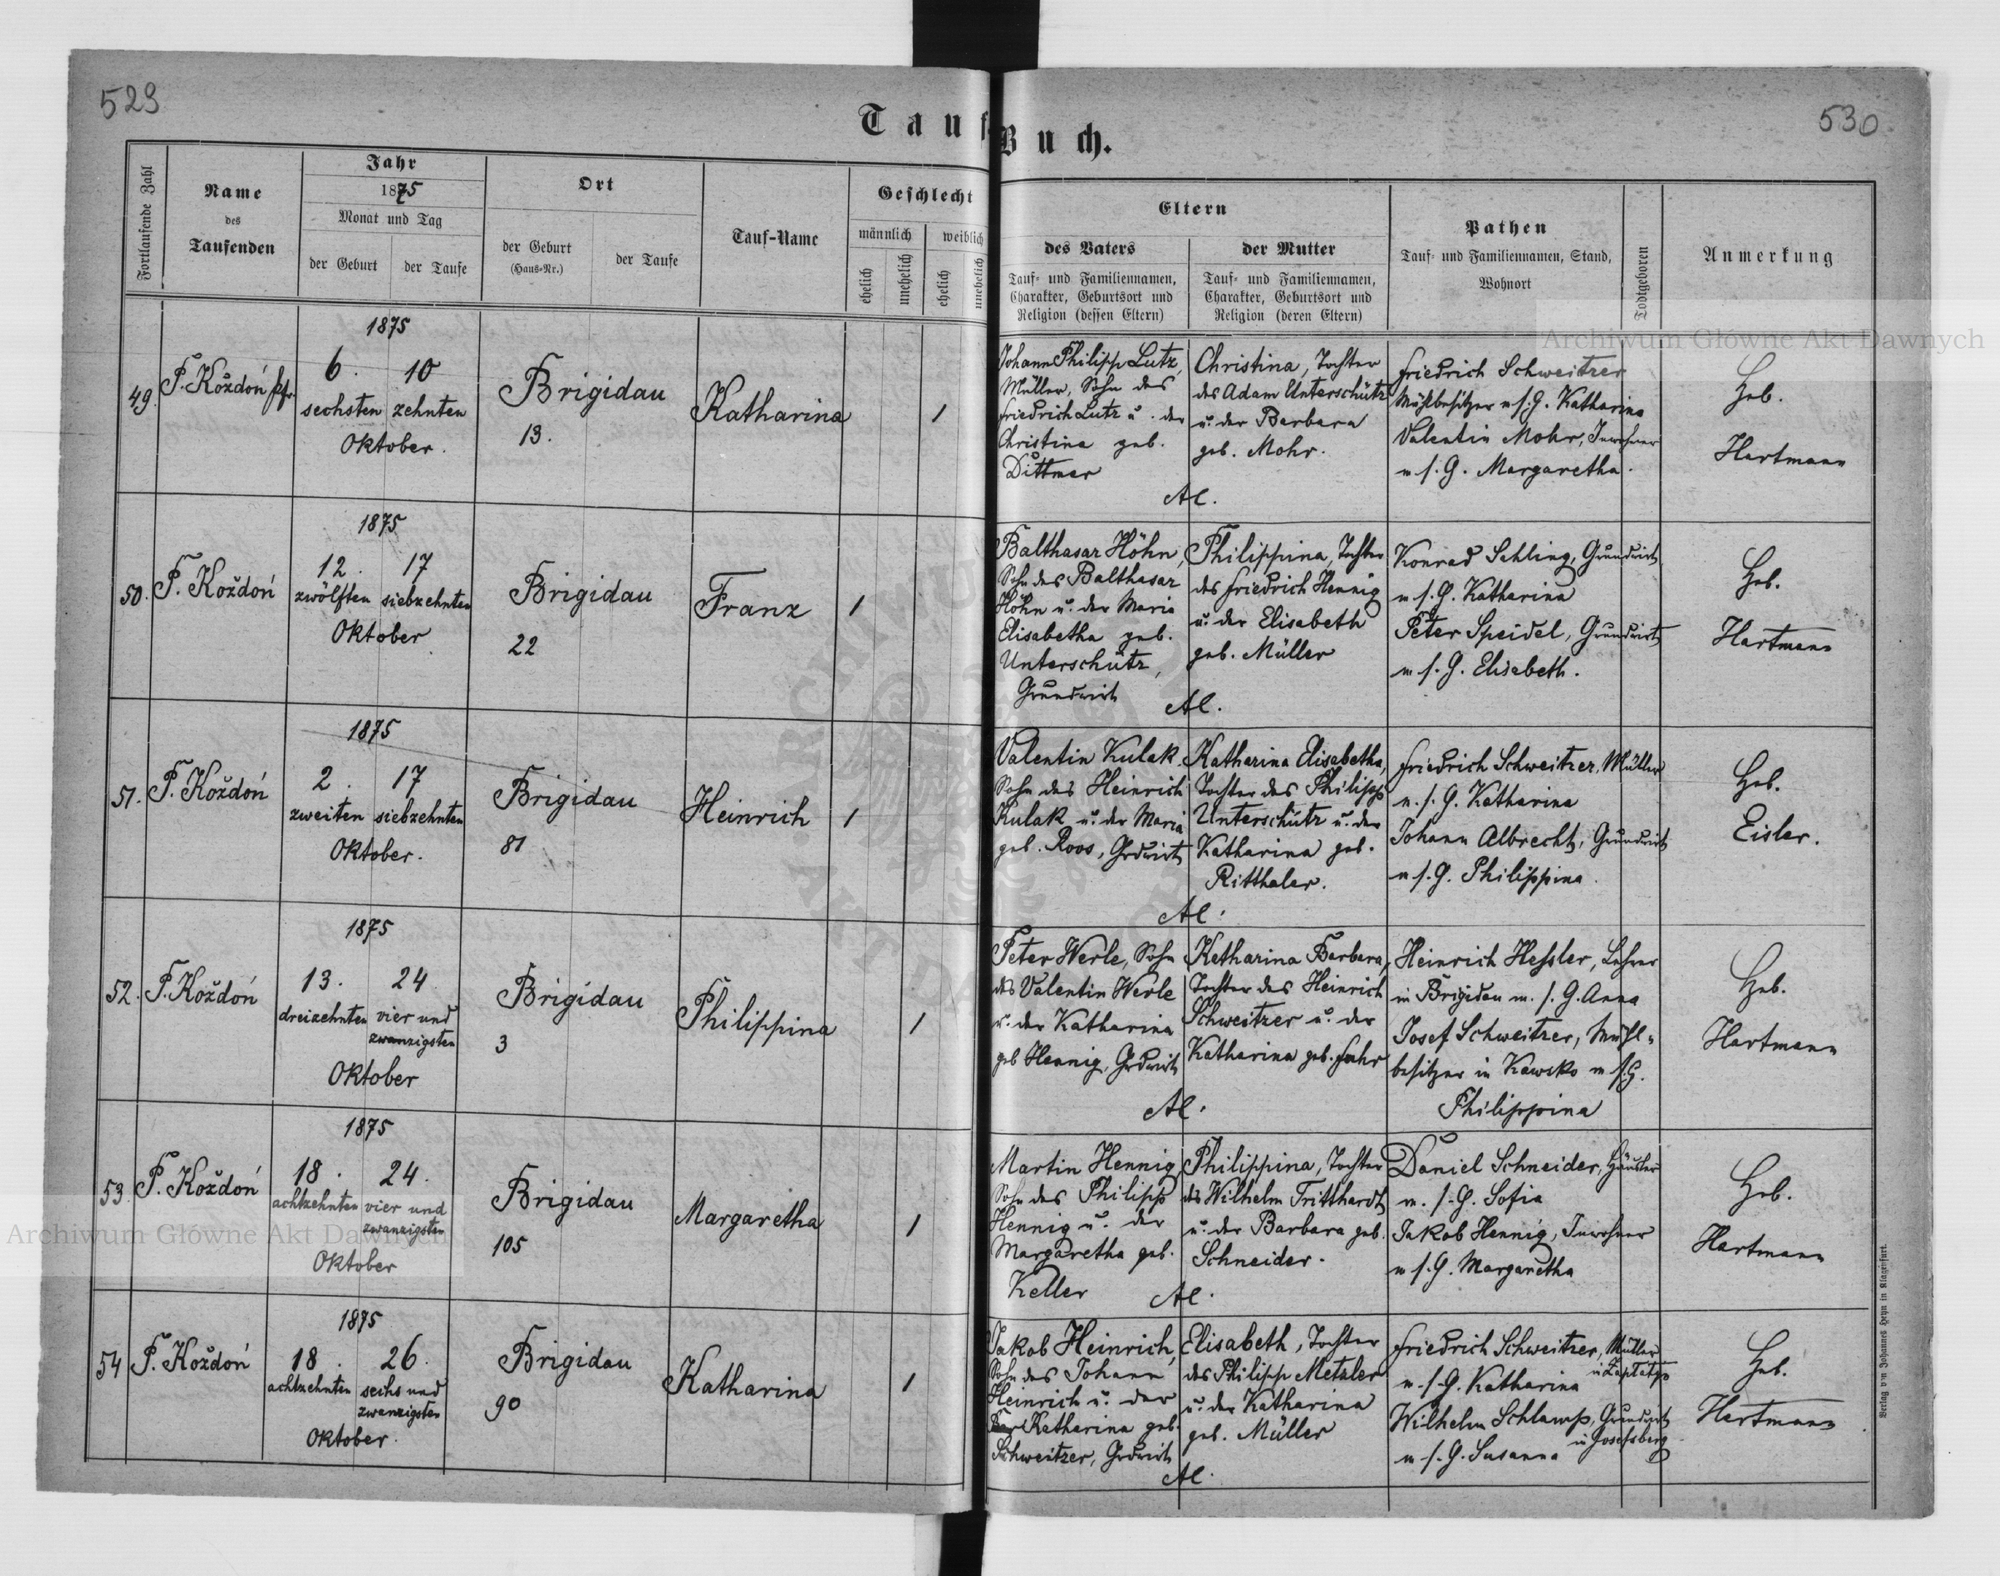 529
530
Tauf-Buch.
Fortlaufende Zahl
Name
des
Taufenden
Jahr
1875
Monat und Tag
der Geburt
der Taufe
Ort
der Geburt
(Haus-Nr.)
der Taufe
Tauf-Name
Geschlecht
männlich
weiblich
ehelich
unehelich
ehelich
unehelich
Eltern
des Vaters
Tauf- und Familiennamen,
Charakter, Geburtsort und
Religion (dessen Eltern)
der Mutter
Tauf- und Familiennamen,
Charakter, Geburtsort und
Religion (deren Eltern)
Pathen
Tauf- und Familiennamen, Stand,
Wohnort
Todtgeboren
Anmerkung
Archiwum Główne Akt Dawnych
49.
P. Koždoń Pfr.
1875
6. 10
sechsten zehnten
Oktober.
Brigidau
13.
Katharina
1
Johann Philipp Lutz,
Müller, Sohn des
Friedrich Lutz u. der
Christina geb.
Dittmer
Christina, Tochter
des Adam Unterschütz
u. der Barbara
geb. Mohr.
AC.
Friedrich Schweitzer
Mühlbesitzer u s. G. Katharina
Valentin Mohr, Inwohner
u s. G. Margaretha.
Heb.
Hartmann
50.
P. Koždoń
1875
12. 17
zwölften siebzehnten
Oktober
Brigidau
22
Franz
1
Balthasar Höhn,
Sohn des Balthasar
Höhn u. der Maria
Elisabetha geb.
Unterschütz,
Grundwirt
Philippina, Tochter
des Friedrich Hennig
u. der Elisabeth
geb. Müller
AC.
Konrad Sehling, Grundwirt
u s. G. Katharina
Peter Speidel, Grundwirt
u s. G. Elisabeth.
Heb.
Hartmann
51.
P. Koždoń
1875
2. 17
zweiten siebzehnten
Oktober.
Brigidau
81
Heinrich
1
Valentin Kulak,
Sohn des Heinrich
Kulak u. der Maria
geb. Roos, Grdwirt
Katharina Elisabetha,
Tochter des Philipp
Unterschütz u. der
Katharina geb.
Ritthaler.
AC.
Friedrich Schweitzer, Müller
u. s. G. Katharina
Johann Albrecht, Grundwirt
u s. G. Philippina.
Heb.
Eisler.
52.
P. Koždoń
1875
13. 24
dreizehnten vier und
zwanzigsten
Oktober
Brigidau
3
Philippina
1
Peter Werle, Sohn
des Valentin Werle
u. der Katharina
geb Hennig, Grdwirt
Katharina Barbara,
Tochter des Heinrich
Schweitzer u. der
Katharina geb. Fahr
AC.
Heinrich Hessler, Lehrer
in Brigidau m. s. G. Anna
Josef Schweitzer, Mühl-
besitzer in Kawsko m s. G.
Philippina
Heb.
Hartmann
53.
P. Koždoń
1875
18. 24.
achtzehnten vier und
zwanzigsten
Oktober
Brigidau
105
Margaretha
1
Martin Hennig
Sohn des Philipp
Hennig u. der
Margaretha geb.
Keller
Philippina, Tochter
des Wilhelm Tritthardt
u. der Barbara geb.
Schneider.
AC.
Daniel Schneider, Häusler
m. s. G. Sofia
Jakob Hennig, Inwohner
m s. G. Margaretha
Heb.
Hartmann
Archiwum Główne Akt Dawnych
54
P. Koždoń
1875
18. 26.
achtzehnten sechs und
zwanzigsten
Oktober.
Brigidau
90
Katharina
1
Jakob Heinrich,
Sohn des Johann
Heinrich u. der
Katharina geb.
Schweitzer, Grdwirt
Elisabeth, Tochter
des Philipp Metzler
u. der Katharina
geb. Müller
AC.
Friedrich Schweitzer, Müller
u. s. G. Katharina
Wilhelm Schlamp, Grundwirt
in Josefsberg
u s. G. Susanna
Heb.
Hartmann
Verlag von Johannes Heyn in Klagenfurt.